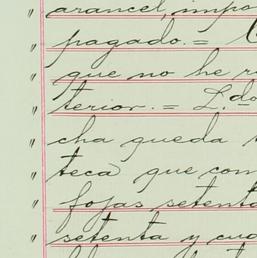 " arancel, impo
" pagado. = 
" que no he r
" terior. = L.do
" cha queda
" teca que com
" fojas setenta
" setenta y cua